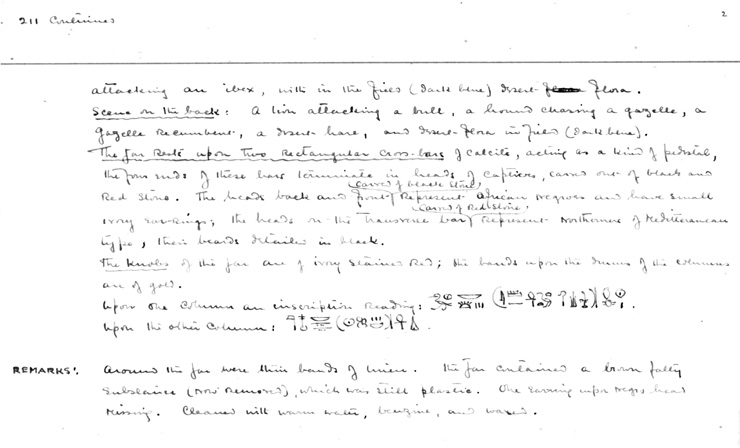 211 Continued
2
attacking an ibex, with in the field (dark blue) desert flora.
Scene on the back: A lion attacking a bull, a hound chasing a gazelle, a
gazelle recumbent, a desert-hare, and desert-flora in field (dark blue).
The jar Rests upon two Rectangular cross-bars of calcite, acting as a kind of pedestal,
the four ends of these bars terminate in heads of captives, carved out of black and
Red Stone. The heads back and front (carved of black stone) Represent African negroes and have small
ivory ear-rings; the heads on the transverse bar (carved of Red Stone) Represent Northerners of Mediterranean
type, their beards detailed in black.
The knobs of the jar are of ivory stained Red; the bands upon the drums of the columns
are of gold.
Upon one column an inscription reading:
Upon the other column:
REMARKS: Around the jar were thin bands of linen. The jar contained a brown fatty
substance (now removed), which was still plastic. One earring upon negro head
missing. Cleaned with warm water, benzine, and waxed.